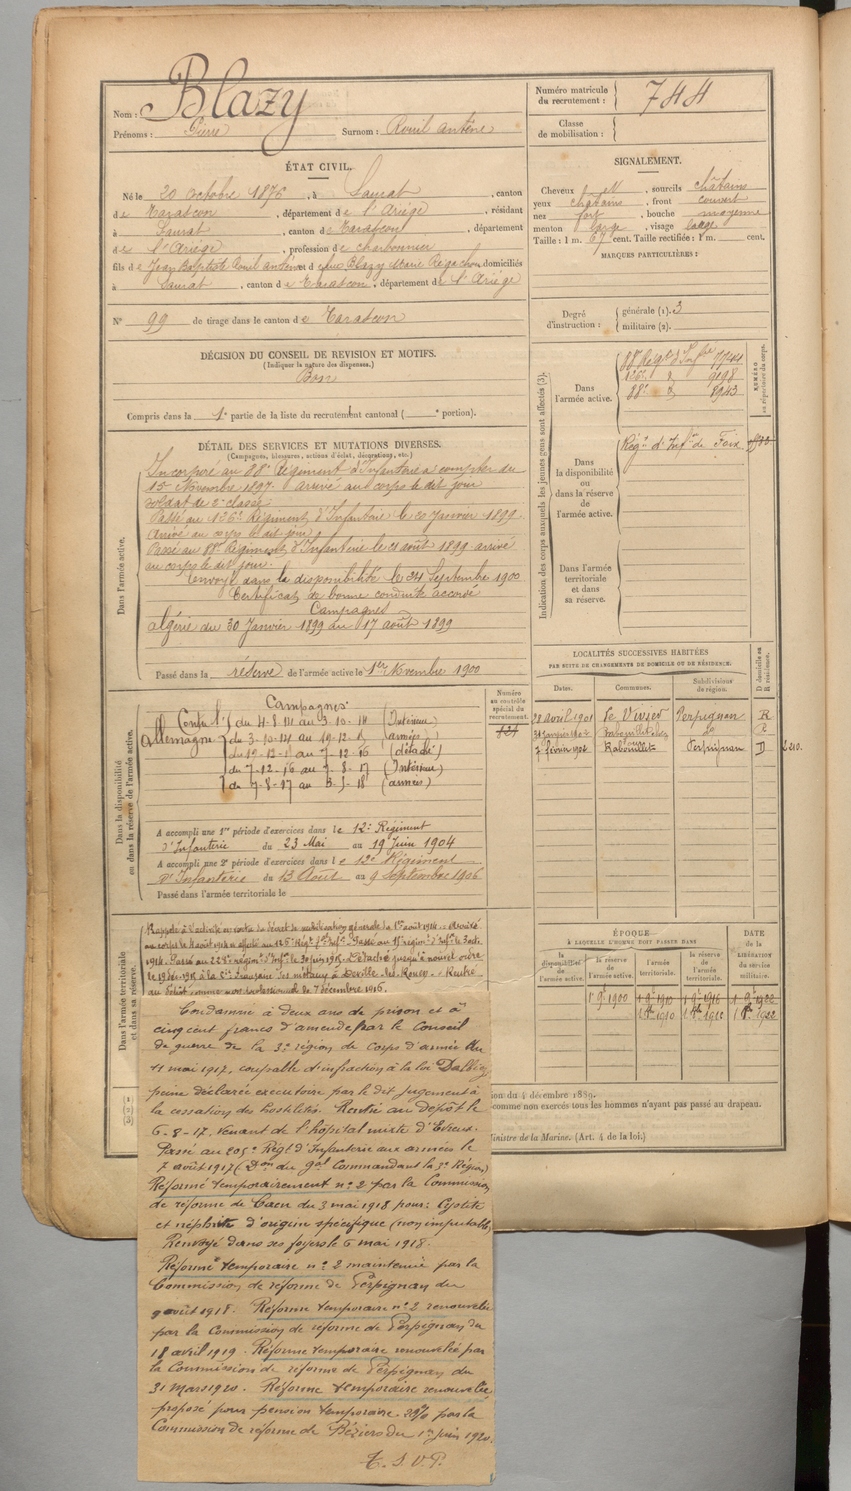 Nom : Blazy
Prénoms : Pierre Surnom : Rouil antoine
ÉTAT CIVIL.
Né le 20 octobre 1876, à Saurat, canton
de Tarascon, département de l'Ariège, résidant
à Saurat, canton de Tarascon, département
de l'Ariège, profession de charbonnier
fils de Jean Baptiste et de Blazy Marie domiciliés
à Saurat, canton de Tarascon, département de l'Ariège
N° 99 de tirage dans le canton de Tarascon
DÉCISION DU CONSEIL DE REVISION ET MOTIFS.
(Indiquer la nature des dispenses.)
Bon
Compris dans la 1e partie de la liste du recrutement cantonal ( e portion).
DÉTAIL DES SERVICES ET MUTATIONS DIVERSES.
(Campagnes, blessures, actions d'éclat, décorations, etc.)
Dans l'armée active.
Incorporé au 88e Régiment d'Infanterie a compter du
15 Novembre 1897 arrivé au corps le dit jour
soldat de 2e classe
Passé au 126e Régiment d'Infanterie le 20 Janvier 1899
Arrivé au corps le dit jour
Passé au 88e Régiment d'Infanterie le 21 août 1899 arrivé
au corps le dit jour.
Envoyé dans la disponibilité le 24 Septembre 1900
Certificat de bonne conduite accordé
Campagnes
Algérie du 30 Janvier 1899 au 17 août 1899
Passé dans la réserve de l'armée active le 1er Novembre 1900
Dans la disponibilité
ou dans la réserve de l'armée active.
Numéro
au contrôle
spécial du
recrutement.
Campagnes
Allemagne
du 4-8-14 au 3-10-14 (Intérieur)
du 3-10-14 au 19-12-15 (armées)
du 19-12-15 au 7-12-16 (détaché)
du 7-12-16 au 7-8-17 (Intérieur)
du 7-8-17 au 3-5-18 (armées)
A accompli une 1re période d'exercices dans le 12e Régiment
d'Infanterie du 23 Mai au 19 Juin 1904
A accompli une 2e période d'exercices dans le 12e Régiment
d'Infanterie du 13 Août au 9 Septembre 1906
Passé dans l'armée territoriale le
Dans l'armée territoriale
et dans sa réserve.
Rappelé à l'activité en vertu du décret de mobilisation générale du 1er août 1914. Arrivé
au corps le 4 août 1914 et affecté au 126e Régt Passé au régiment d'Infie le 3 oct.
1914. Passé au 224e régimt d'Infie le 20 juin 1915. Détaché jusqu'à nouvel ordre
le 19 déc. 1915 à la Sté française des métaux à Deville-les-Rouen. Rentré
au dépôt comme non professionnel le 7 décembre 1916.
Condamné à deux ans de prison et à
cinq cent francs d'amende par le Conseil
de guerre de la 3e région de Corps d'armée du
11 mai 1917, coupable d'infraction à la loi Dalbiez
peine déclarée exécutoire par le dit Jugement à
la cessation des hostilités. Rentré au dépôt le
6-8-17, venant de l'hôpital mixte d'Evreux.
Passé au 205e Régt d'Infanterie aux armées le
7 août 1917 (Don du gal Commandant la 3e Région)
Réformé temporairement n° 2 par la Commission
de réforme de Caen du 3 mai 1918 pour: Cystite
et néphrite d'origine spécifique (non imputable)
Renvoyé dans ses foyers le 6 mai 1918.
Réforme temporaire n° 2 maintenue par la
Commission de réforme de Perpignan du
9 août 1918. Réforme temporaire n° 2 renouvelée
par la Commission de réforme de Perpignan du
18 avril 1919. Réforme temporaire renouvelée par
la Commission de réforme de Perpignan du
31 Mars 1920. Réforme temporaire renouvelée
proposé pour pension temporaire 20% par la
Commission de réforme de Béziers du 1er Juin 1920.
T. S. V. P.
Numéro matricule
du recrutement : 744
Classe
de mobilisation :
SIGNALEMENT.
Cheveux et sourcils châtains
yeux châtains, front couvert
nez fort, bouche moyenne
menton large, visage large
Taille : 1 m. 67 cent. Taille rectifiée : 1 m. cent.
MARQUES PARTICULIÈRES :
Degré
d'instruction :
générale (1). 3
militaire (2).
Indication des corps auxquels les jeunes gens sont affectés (3).
NUMÉRO
au répertoire du corps.
Dans
l'armée active.
88e Régt d'Infie 7741
126e d° 9198
88e d° 8943
Dans
la disponibilité
ou
dans la réserve
de
l'armée active.
Régt d'Infie de Foix
Dans l'armée
territoriale
et dans
sa réserve.
LOCALITÉS SUCCESSIVES HABITÉES
PAR SUITE DE CHANGEMENTS DE DOMICILE OU DE RÉSIDENCE.
Dates. Communes. Subdivisions
de région. D domicile ou
R résidence.
28 avril 1901 Le Vivier Perpignan R
31 janvier 1902 d° R
7 février 1904 Rabouillet Perpignan D 240.
ÉPOQUE
À LAQUELLE L'HOMME DOIT PASSER DANS
DATE
de la
LIBÉRATION
du service
militaire.
la
disponibilité
de
l'armée active.
la réserve
de
l'armée active.
l'armée
territoriale.
la réserve
de
l'armée
territoriale.
1 9bre 1900 1 9bre 1910 1 9bre 1916 1 9bre 1922
1 8bre 1910 1 8bre 1916 1 8bre 1922
ion du 4 décembre 1889.
comme non exercés tous les hommes n'ayant pas passé au drapeau.
Ministre de la Marine. (Art. 4 de la loi.)
(1)
(2)
(3)